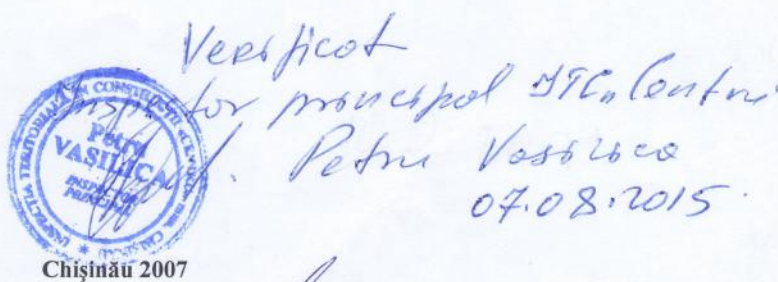 Verificat
Inspector principal ITC „Centru
Petru Vasilica
07.08.2015.
INSPECȚIA TERITORIALĂ ÎN CONSTRUCȚII
Petru
VASILICA
INSPECTOR
PRINCIPAL
Chișinău 2007